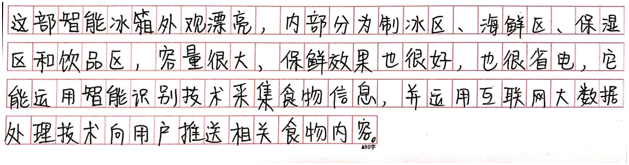 这部智能冰箱外观漂亮，内部分为制冰区、海鲜区、保湿
区和饮品区，容量很大、保鲜效果也很好，也很省电，它
能运用智能识别技术采集食物信息，并运用互联网大数据
处理技术向用户推送相关食物内容。
400字